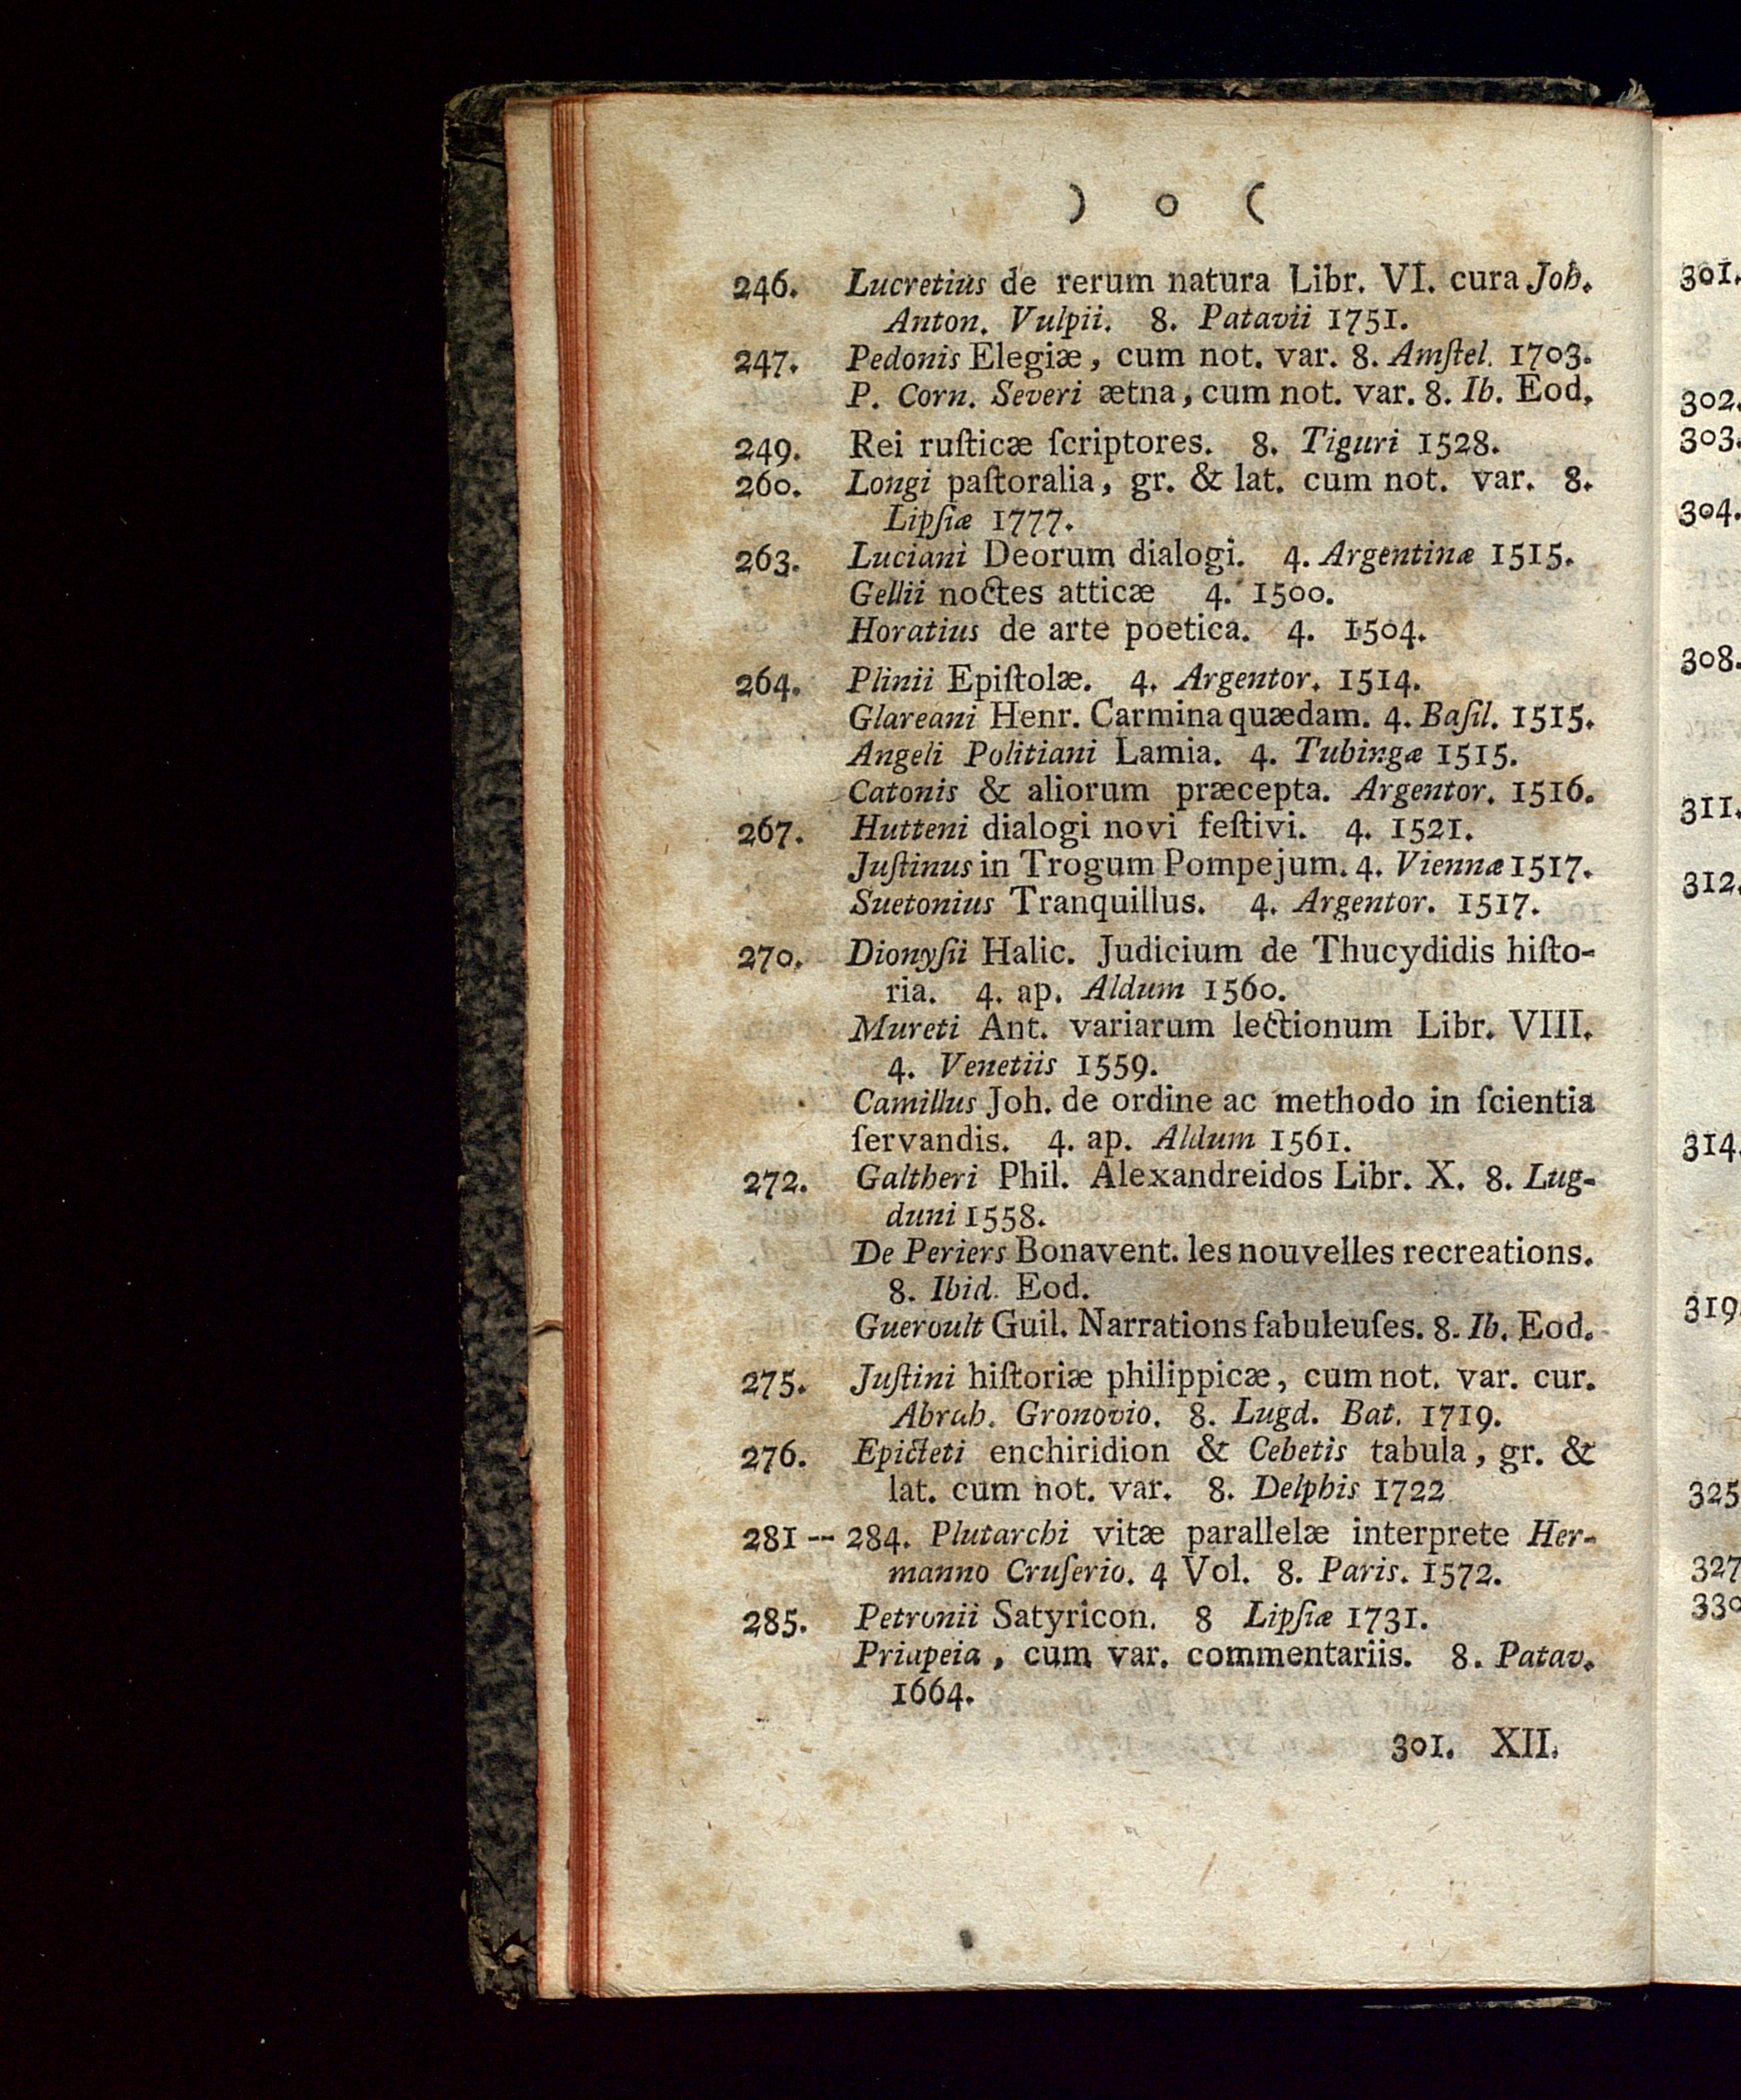 ) o (
246. Lucretius de rerum natura Libr. VI. cura Joh.
Anton. Vulpii. 8. Patavii 1751.
247. Pedonis Elegiæ, cum not. var. 8. Amſtel. 1703.
P. Corn. Severi ætna, cum not. var. 8. Ib. Eod.
249. Rei ruſticæ ſcriptores. 8. Tiguri 1528.
260. Longi paſtoralia, gr. & lat. cum not. var. 8.
Lipſiæ 1777.
263. Luciani Deorum dialogi. 4. Argentinæ 1515.
Gellii noctes atticæ 4. 1500.
Horatius de arte poetica. 4. 1504.
264. Plinii Epiſtolæ. 4. Argentor. 1514.
Glareani Henr. Carmina quædam. 4. Baſil. 1515.
Angeli Politiani Lamia. 4. Tubingæ 1515.
Catonis & aliorum præcepta. Argentor. 1516.
267. Hutteni dialogi novi feſtivi. 4. 1521.
Juſtinus in Trogum Pompejum. 4. Viennæ 1517.
Suetonius Tranquillus. 4. Argentor. 1517.
270. Dionyſii Halic. Judicium de Thucydidis hiſto-
ria. 4. ap. Aldum 1560.
Mureti Ant. variarum lectionum Libr. VIII.
4. Venetiis 1559.
Camillus Joh. de ordine ac methodo in ſcientia
ſervandis. 4. ap. Aldum 1561.
272. Galtheri Phil. Alexandreidos Libr. X. 8. Lug-
duni 1558.
De Periers Bonavent. les nouvelles recreations.
8. Ibid. Eod.
Gueroult Guil. Narrations fabuleuſes. 8. Ib. Eod.
275. Juſtini hiſtoriæ philippicæ, cum not. var. cur.
Abrah. Gronovio. 8. Lugd. Bat. 1719.
276. Epicteti enchiridion & Cebetis tabula, gr. &
lat. cum not. var. 8. Delphis 1722
281 -- 284. Plutarchi vitæ parallelæ interprete Her-
manno Cruſerio. 4 Vol. 8. Paris. 1572.
285. Petronii Satyricon. 8 Lipſiæ 1731.
Priapeia, cum var. commentariis. 8. Patav.
1664.
301. XII.
301.
302.
303.
304.
308.
311.
312.
314.
319
325
327
330